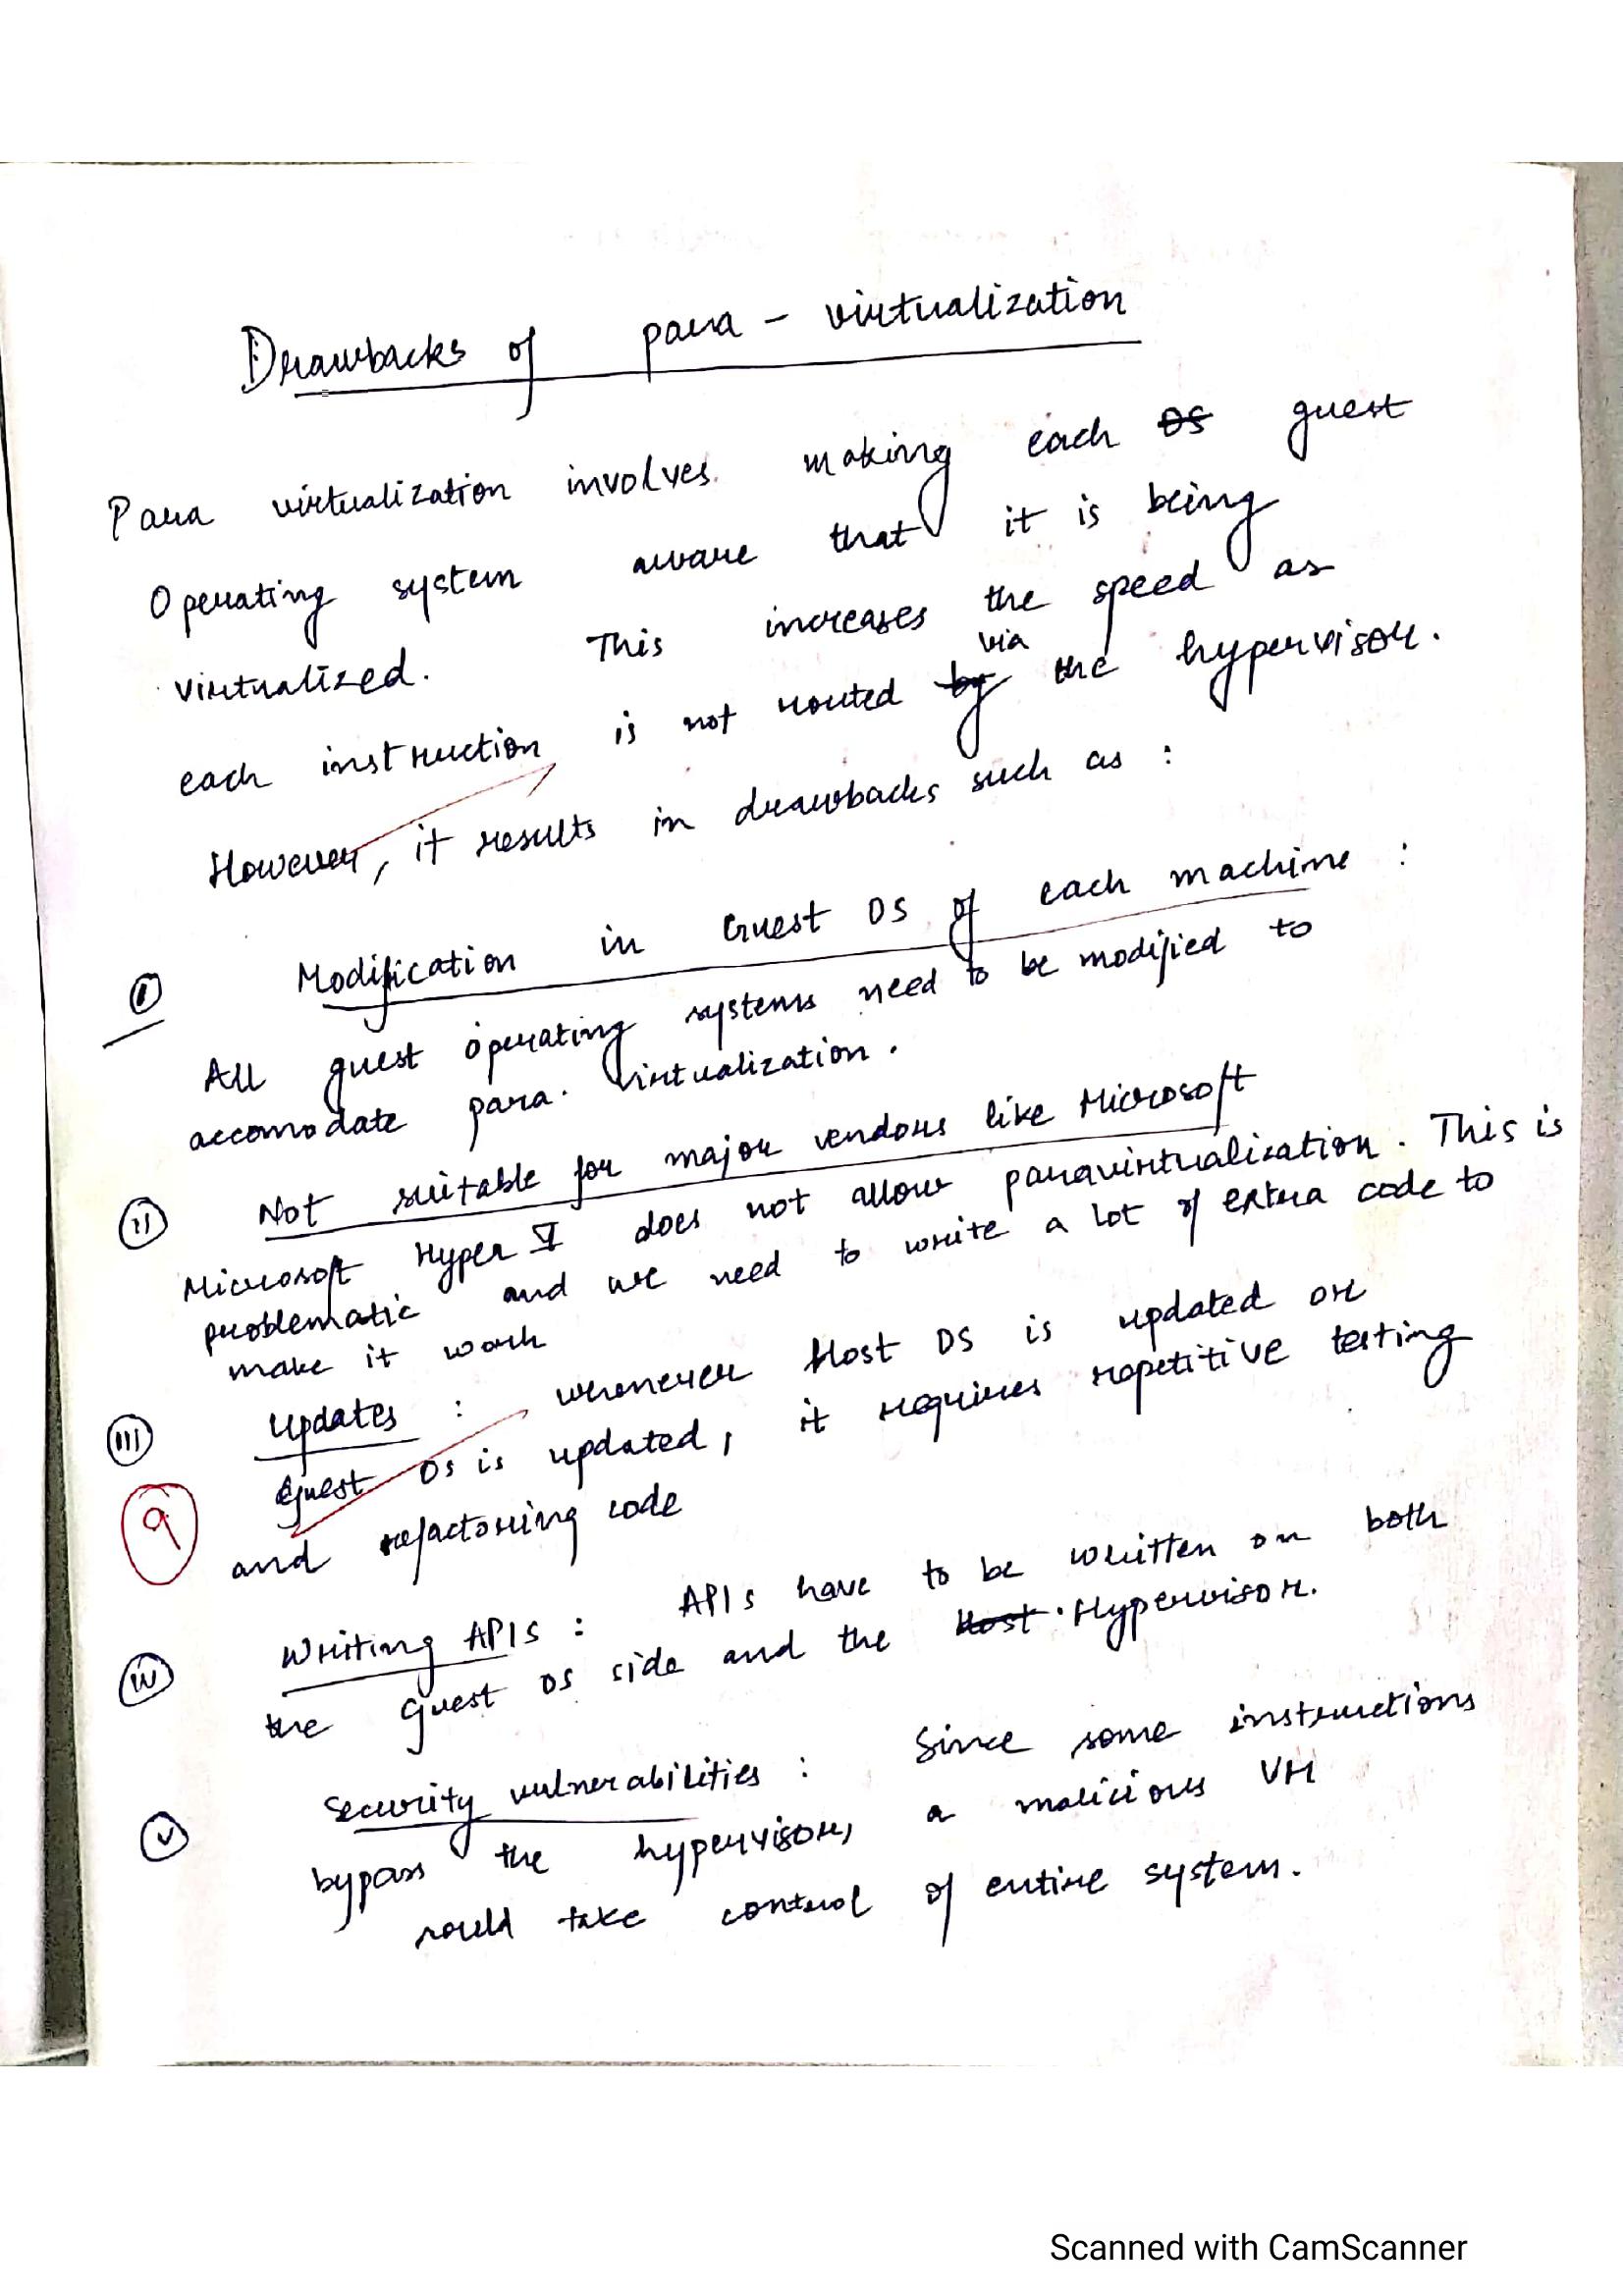 Drawbacks of para - virtualization
Para virtualization involves making each OS guest
Operating system aware that it is being
virtualized. This increases the speed as
each instruction is not routed by via the hypervisor.
However, it results in drawbacks such as :
(i) Modification in Guest OS of each machine :
All guest operating systems need to be modified to
accomodate para virtualization.
(ii) Not suitable for major vendors like Microsoft
Microsoft Hyper V does not allow paravirtualization. This is
problematic and we need to write a lot of extra code to
make it work
(iii) Updates : whenever Host OS is updated or
Guest OS is updated, it requires repetitive testing
9
and refactoring code
(iv) Writing APIs : APIs have to be written on both
the guest OS side and the Host Hypervisor.
(v) Security vulnerabilities : Since some instructions
bypass the hypervisor, a malicious VM
could take control of entire system.
Scanned with CamScanner